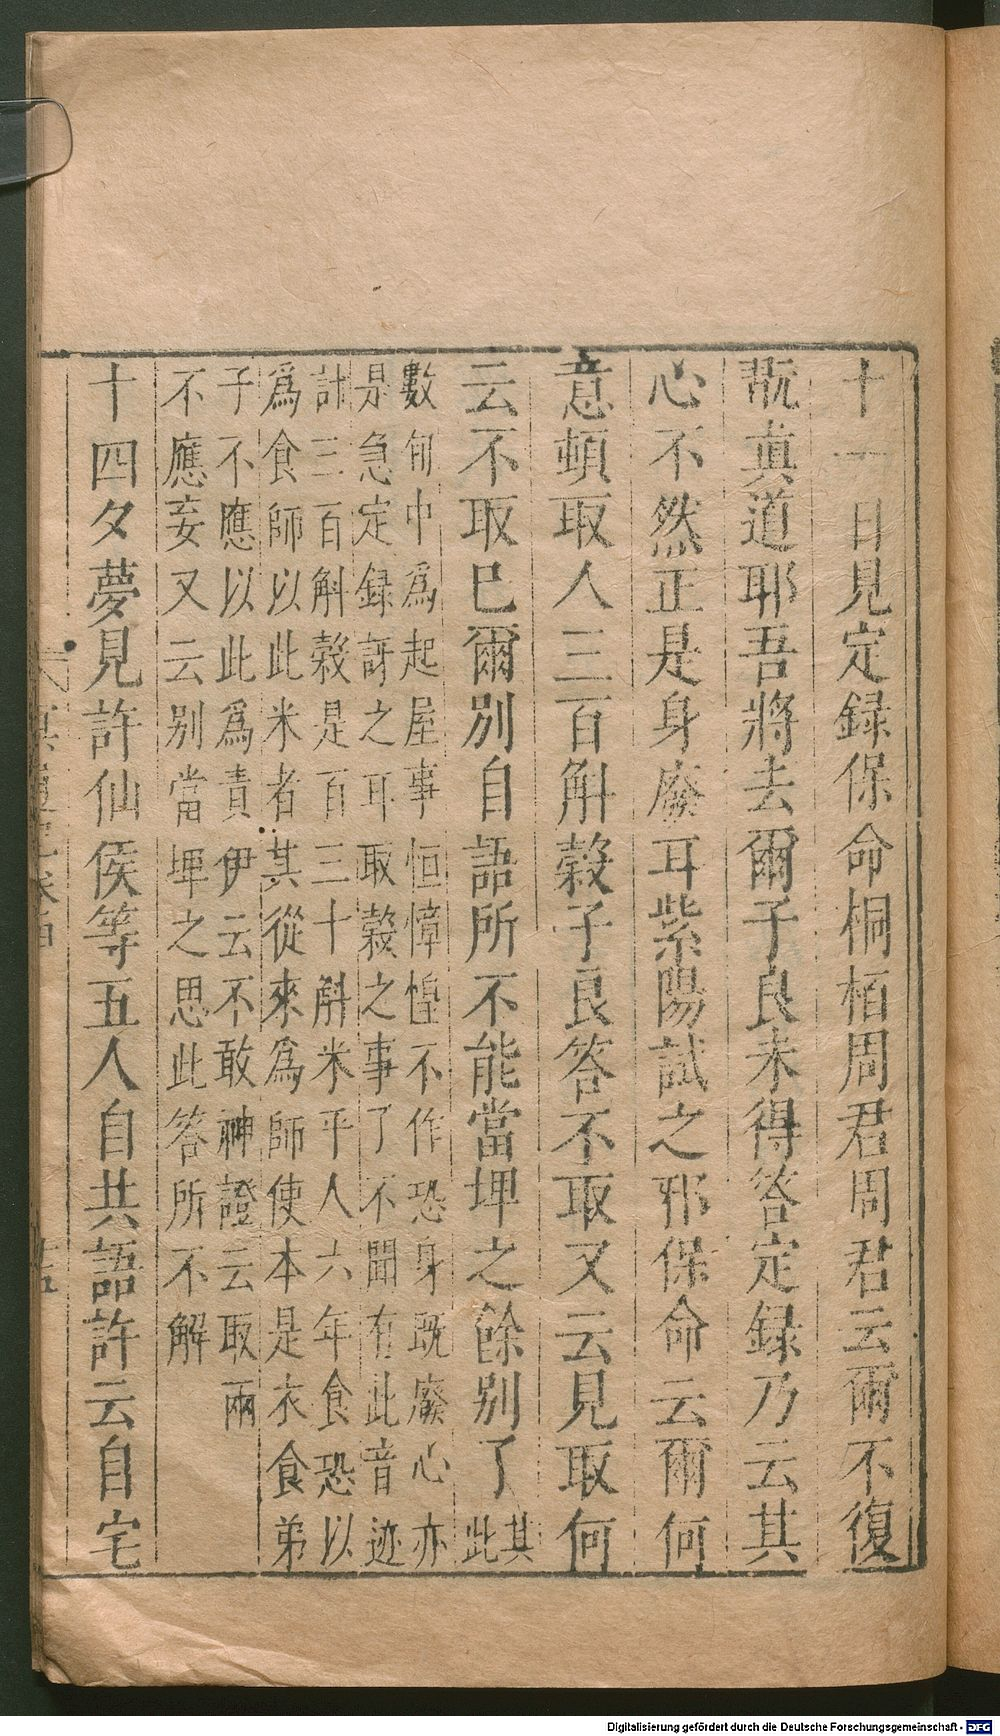 十一日見定録保命桐栢周君周君云爾不復
翫真道耶吾將去爾子良未得答定録乃云其
心不然正是身廢耳紫陽試之邪保命云爾何
意頓取人三百斛榖子良答不取又云見取何
云不取巳爾別自語所不能當埋之餘別了其
此
數旬中為起屋事恒憧惶不作恐身既廢心亦
是急定録訝之耳取榖之事了不聞有此音迹
計三百斛榖是百三十斛米平人六年食恐以
爲食師以此米者其從來爲師使本是衣食弟
子不應以此爲責伊云不敢神證云取兩
不應妄又云别當埋之思此答所不解
十四夕夢見許仙侯等五人自共語許云自宅
Digitalisierung gefördert durch die Deutsche Forschungsgemeinschaft - DFG